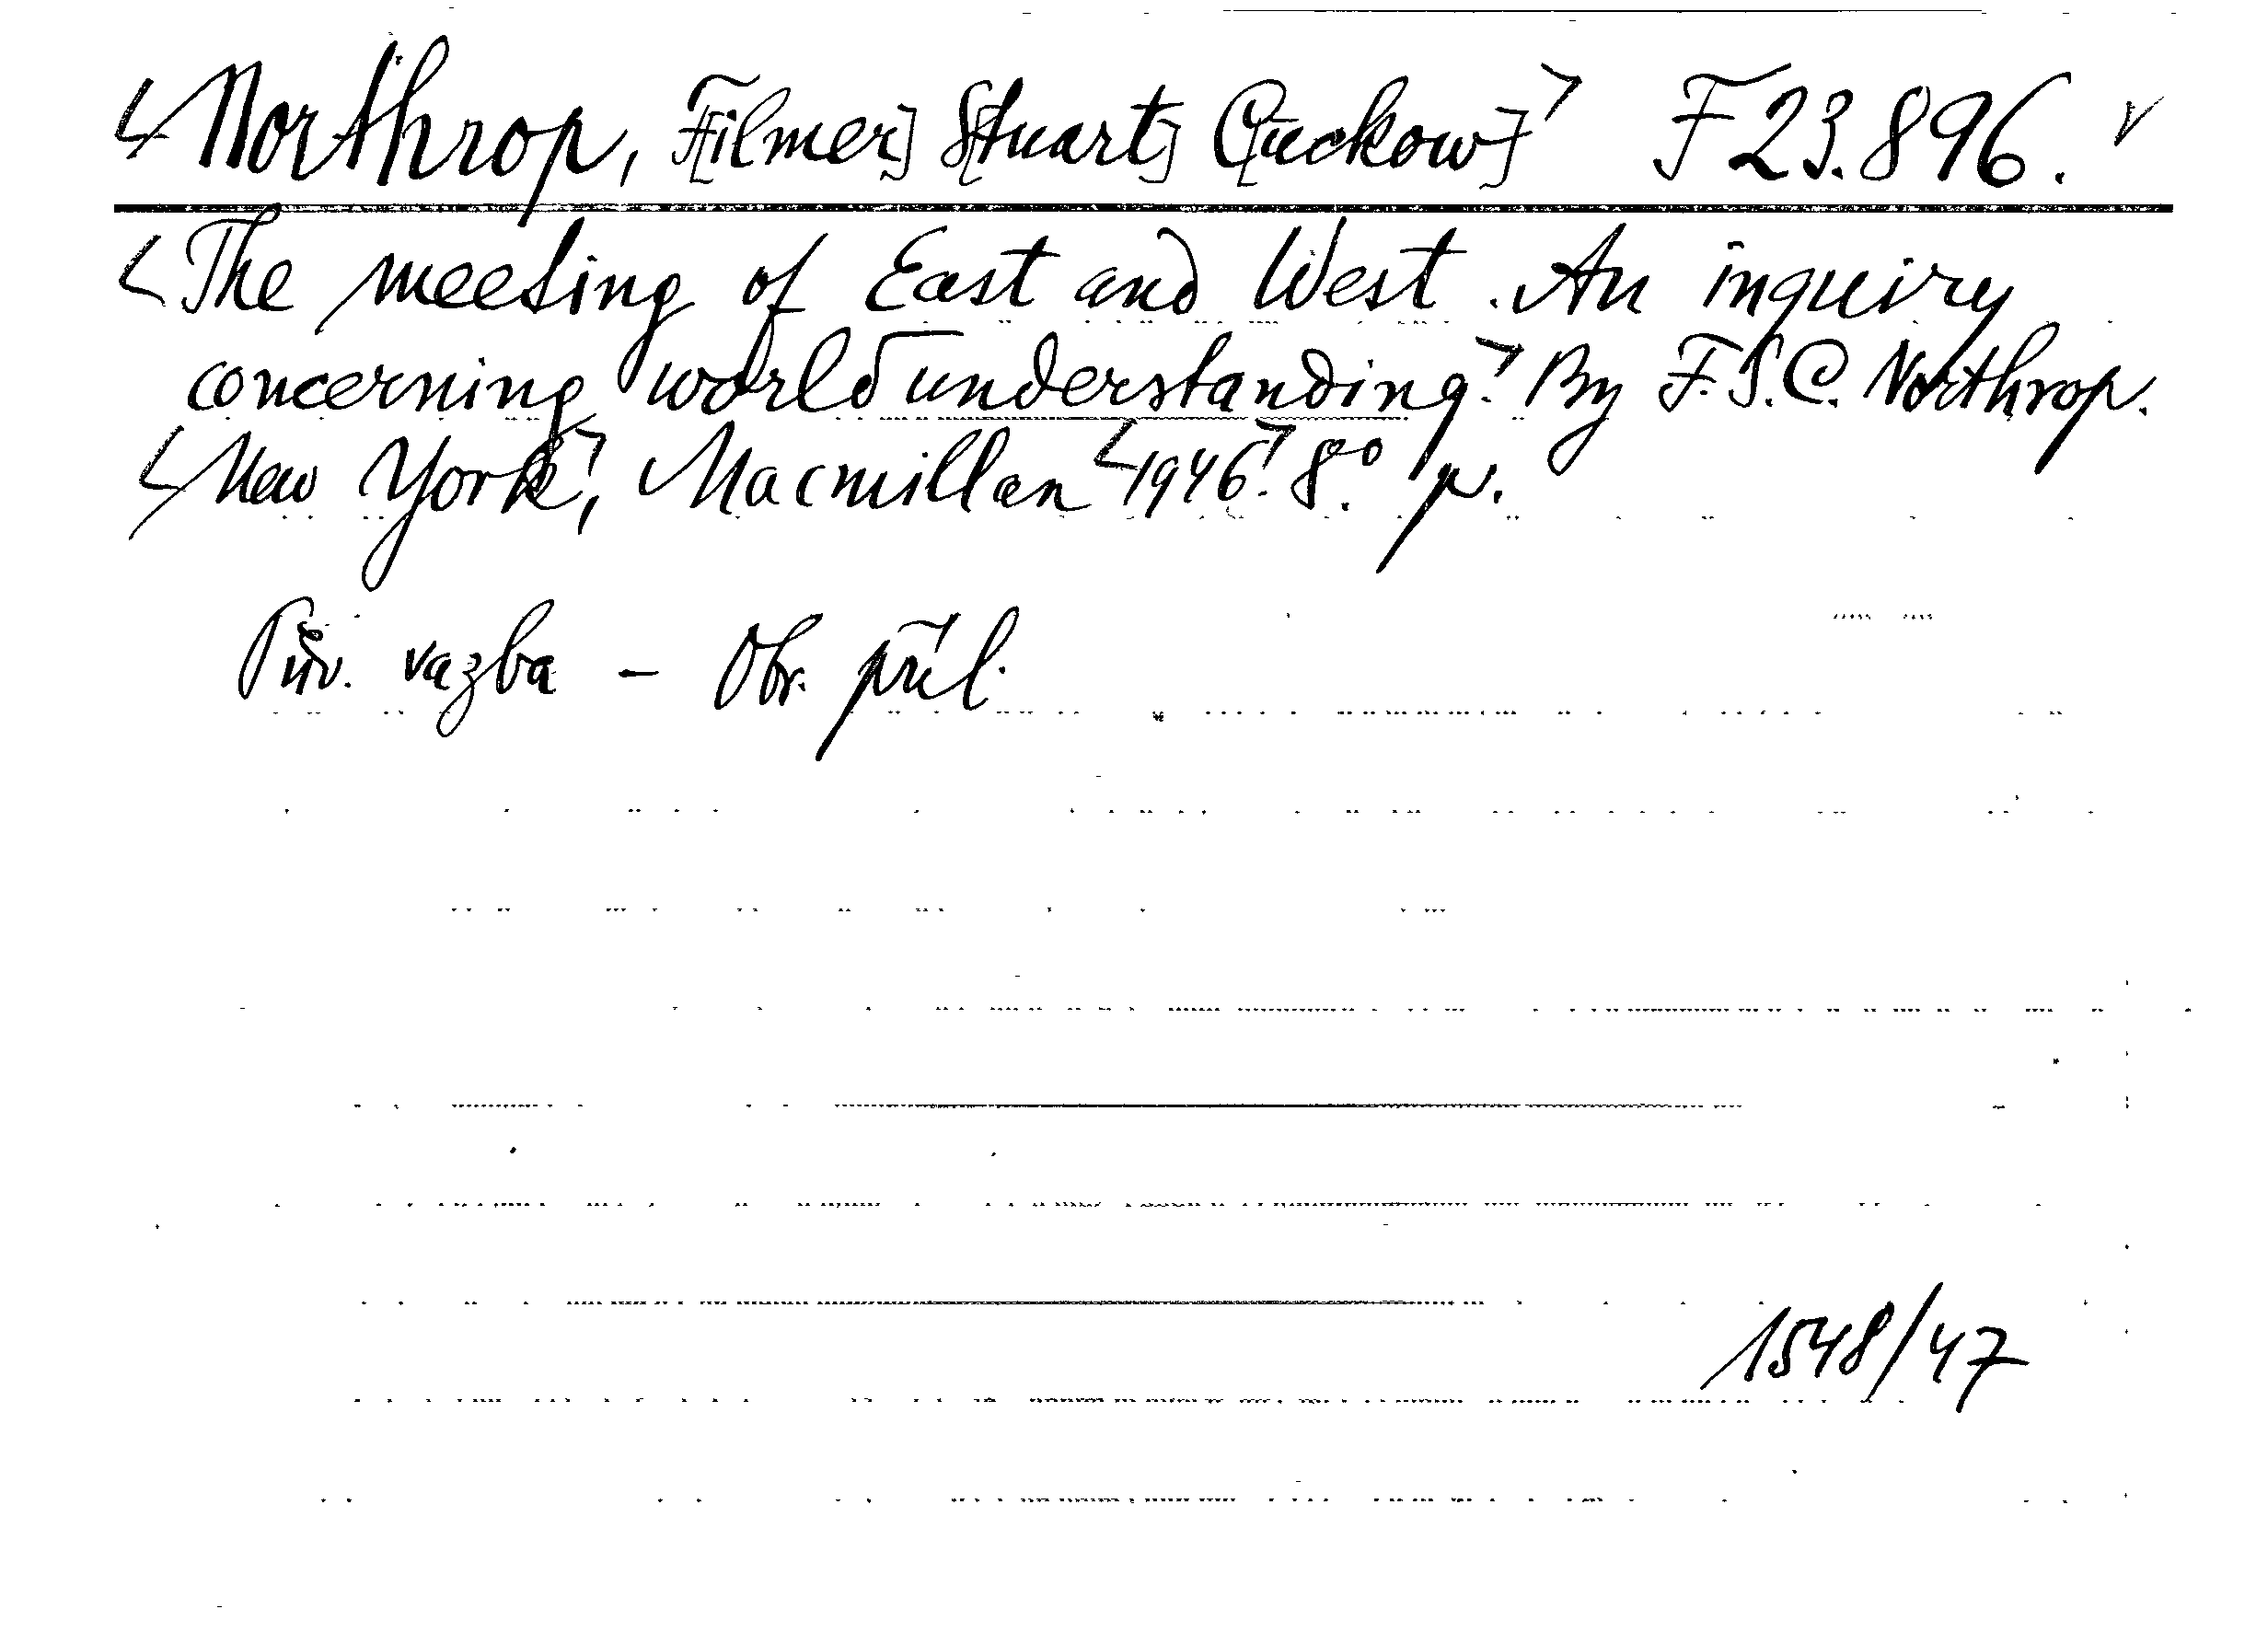 <Northrop, F[ilmer] S[tuart] C[uckow]> F 23.896. v
<The meeting of East and West. An inquiry
concerning world understanding.> By F. S. C. Northrop.
<New York>, Macmillan <1946>. 8.° p.
Pův. vazba – Obr. příl.
1548/47